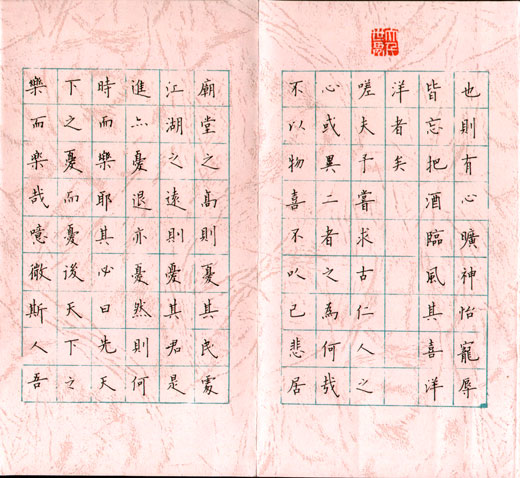 也則有心曠神怡寵辱
皆忘把酒臨風其喜洋
洋者矣
嗟夫予嘗求古仁人之
心或異二者之為何哉
不以物喜不以己悲居
廟堂之高則憂其民處
江湖之遠則憂其君是
進亦憂退亦憂然則何
時而樂耶其必曰先天
下之憂而憂後天下之
樂而樂哉噫微斯人吾